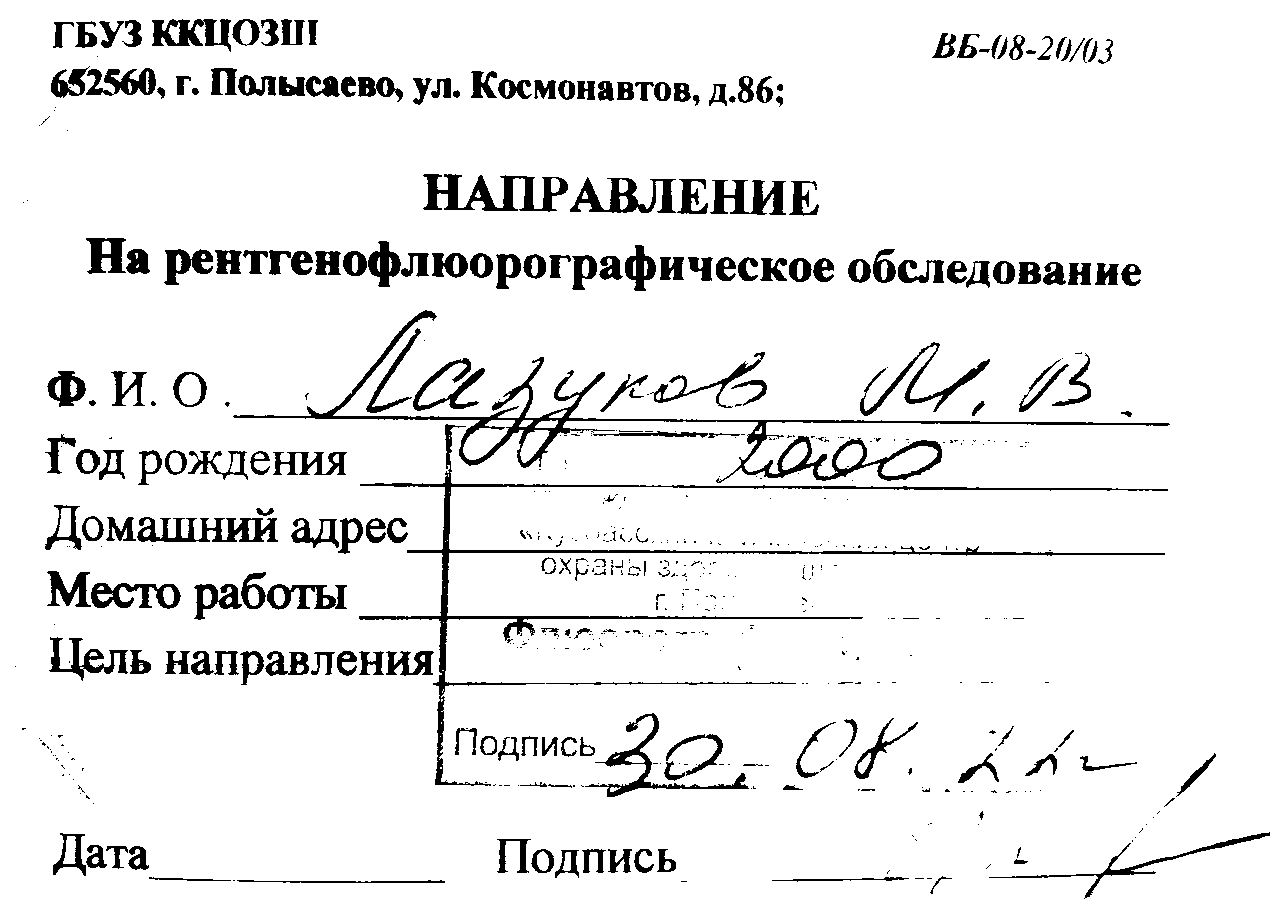 ГБУЗ ККЦОЗШ
ВБ-08-20/03
652560, г. Полысаево, ул. Космонавтов, д.86;
НАПРАВЛЕНИЕ
На рентгенофлюорографическое обследование
Ф. И. О. Лазуков М. В.
Год рождения 2000
Домашний адрес
охраны
Место работы
г.
Цель направления
Подпись 30.08.22г
Дата Подпись